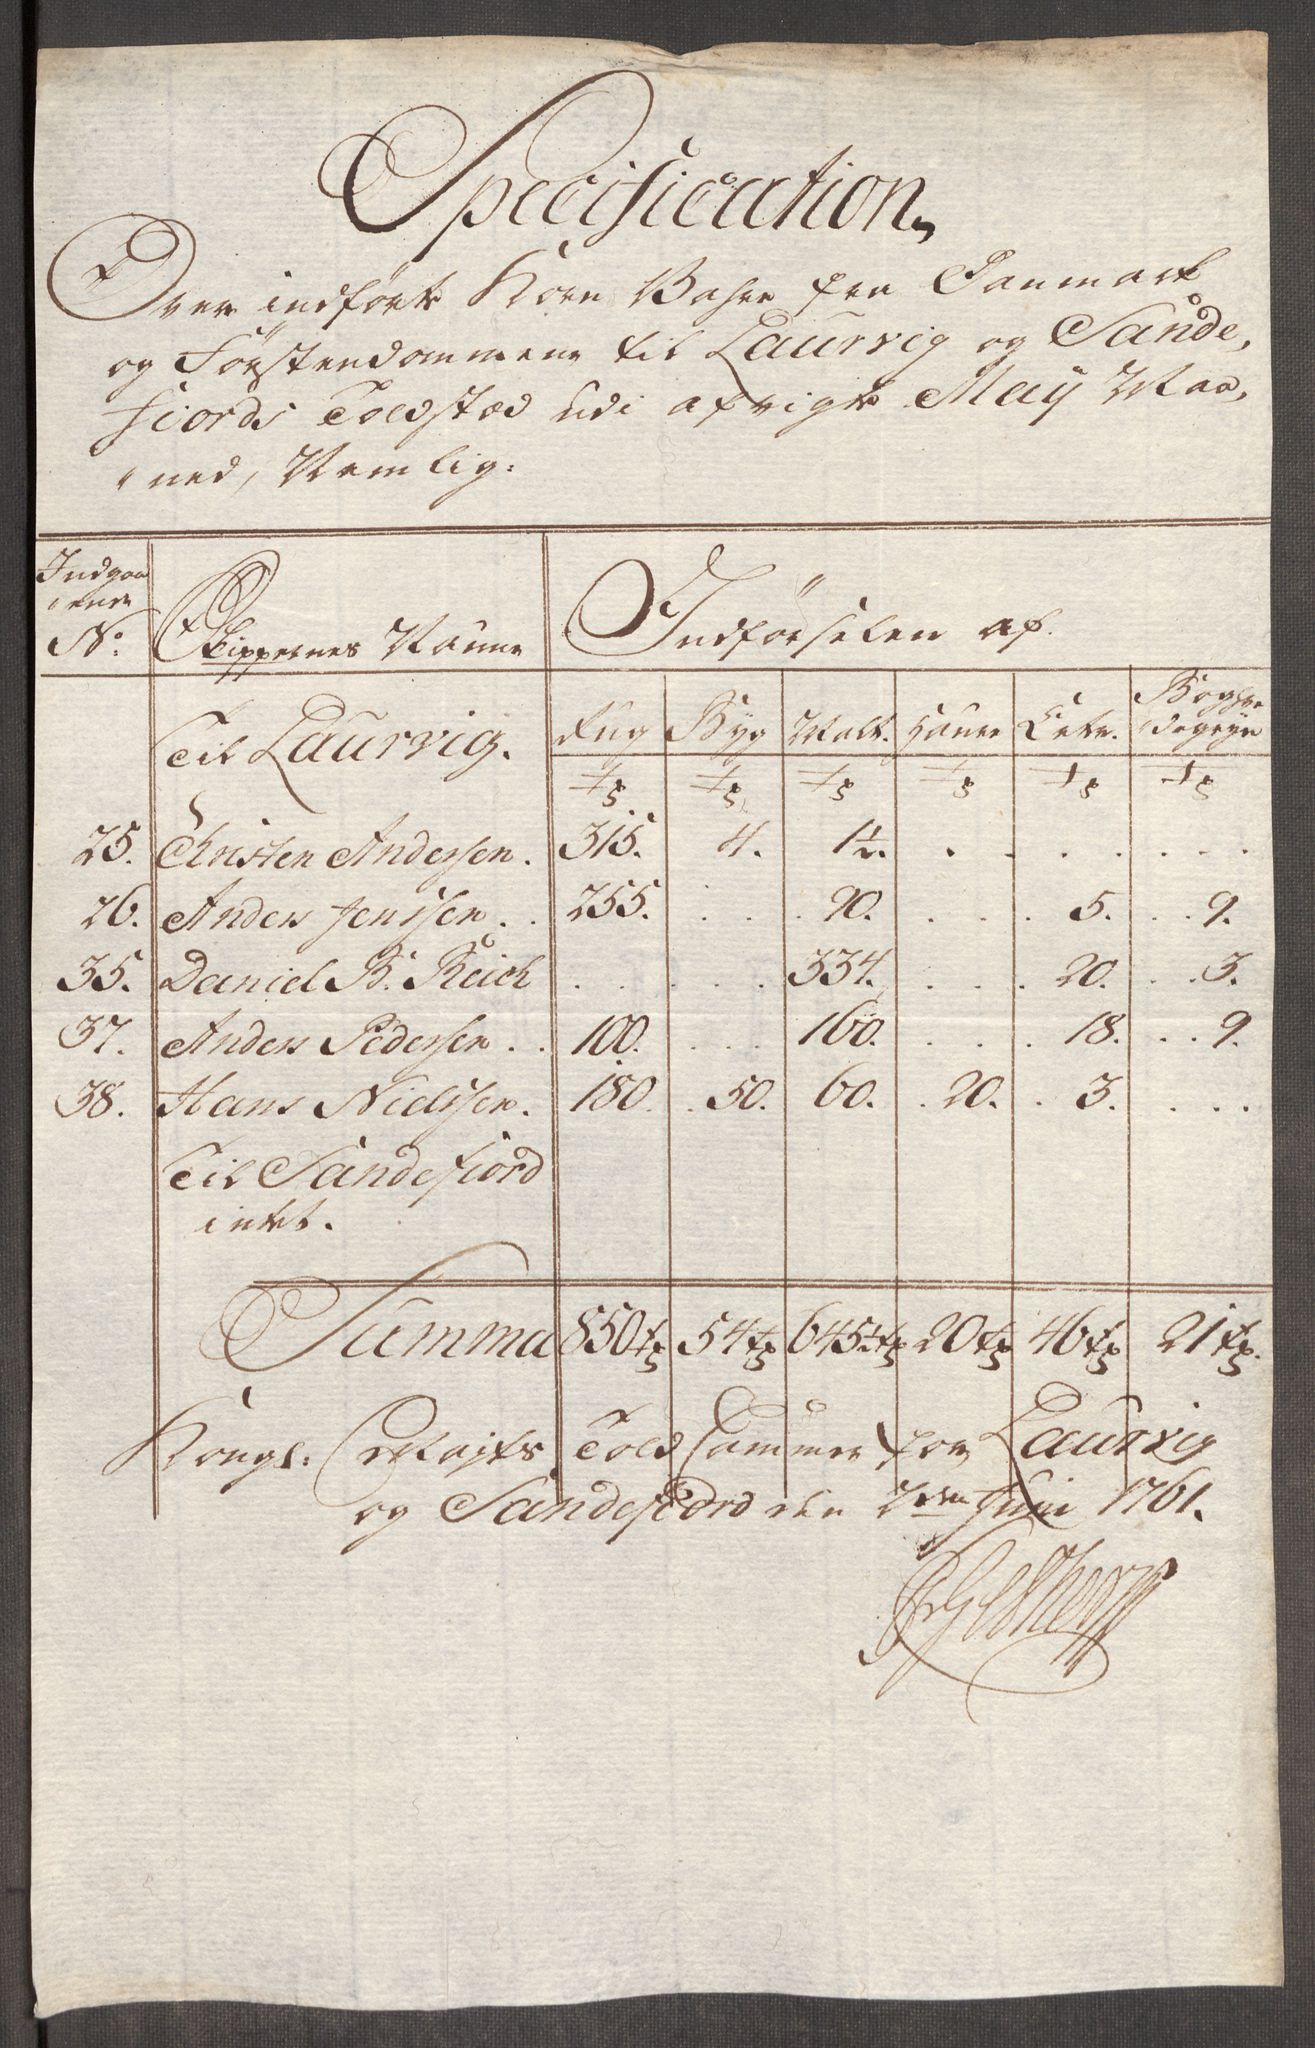 Specification
Over indførte Korn Vahre fra Danmark
og Førstendommene til Laurvig og Sande,
fiords Toldstæd udi afvigte Maij Maa,
ned, Nemlig:
Indgaa
ende
No: Skippernes Nanne Indførselen af.
Til Laurvig. Rug Byg Malt. Haure Erter. Boghve
degryn
tr tr tr tr tr tr
25. Christen Andersen. 315. 4. 1½. . . . . . . .
26. Anders Jenssen . . 255. . . . 90. . . . 5. . . 9.
35. Daniel B. Reich . . . . . 334. . . . 20. . . 3.
37. Anders Pedersen . . 100. . . . 160. . . . 18. . . 9.
38. Hans Nielssen. 180. . 50. 60. . 20. . 3. . . .
Til Sandefiord
intet.
Summa 850 tr 54 tr 645½ tr 20 tr 46 tr 21 tr.
Kongl: Mayts Told Cammer for Laurvig
og Sandefiord den 2den Junii 1761.